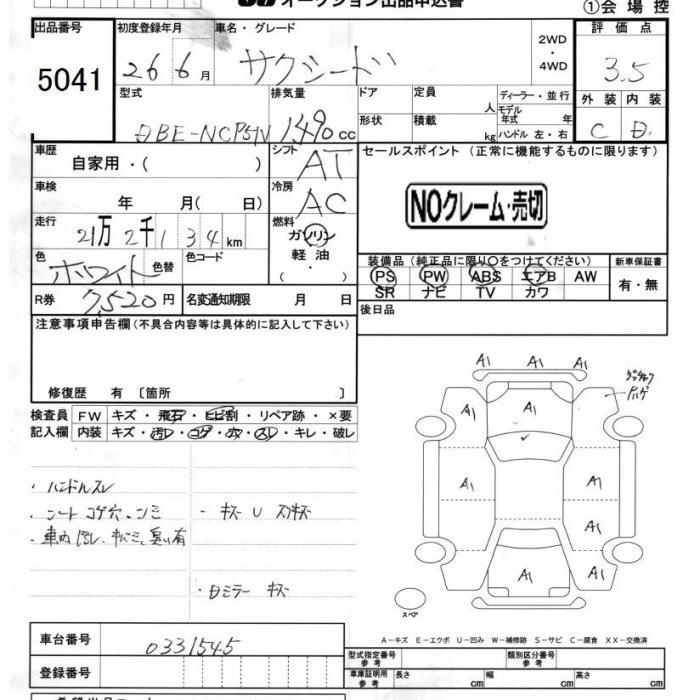 オークション出品申込書
①会場控
出品番号 初度登録年月 車名・グレード 2WD・4WD 評価点
5041 26 6月 サクシード 3.5
型式 排気量 ドア 定員 人 ディーラー・並行 外装 内装
DBE-NCP51V 1490 cc 形状 積載 kg モデル年式 年 ハンドル 左・右 C D
車歴 自家用・( ) シフト AT セールスポイント (正常に機能するものに限ります)
車検 年 月(日) 冷房 AC
NOクレーム・売切
走行 21万2千134km 燃料 ガソリン 軽油 ( ・ )
色 ホワイト 色替 色コード
装備品(純正品に限り○をつけてください) 新車保証書
PS PW ABS エアB AW 有・無
SR ナビ TV カワ
R券 7,520円 名変通知期限 月 日
後日品
注意事項申告欄(不具合内容等は具体的に記入して下さい)
修復歴 有 〔箇所 〕
検査員 FW キズ・飛石・ヒビ割・リペア跡・×要
記入欄 内装 キズ・汚レ・コゲ・穴・スレ・キレ・破レ
A1 A1 A1
A1 A1
A1 A1
A1
A1 A1 A1
スペア
・ハンドルスレ
・シート コゲ穴、シミ ・キズ U
・車内 汚レ、キバミ、臭い有
・Dミラー キズ
A-キズ E-エクボ U-凹み W-補修跡 S-サビ C-腐食 XX-交換済
車台番号 0331545
型式指定番号 参考 類別区分番号 参考
登録番号
車庫証明用 参考 長さ cm 幅 cm 高さ cm